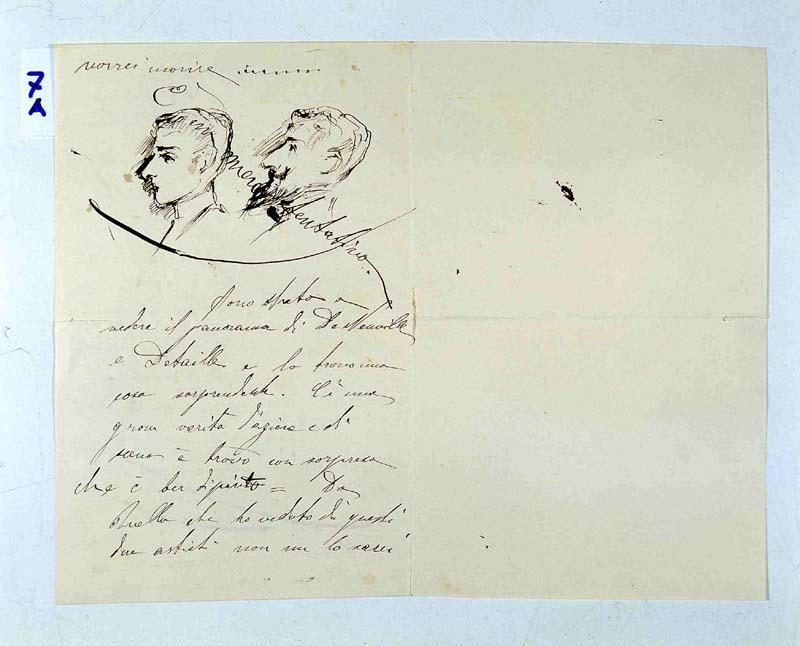 7
A
vorrei morire
meno tentativo.
sono stato a
vedere il panorama di De Neuville
e Detaille e lo trovo una
cosa sorprendente. C'è una
gran verità d'azione e di
scena e trovo con sorpresa
che è ben dipinto = Da
quello che ho veduto di questi
due artisti non me lo sarei